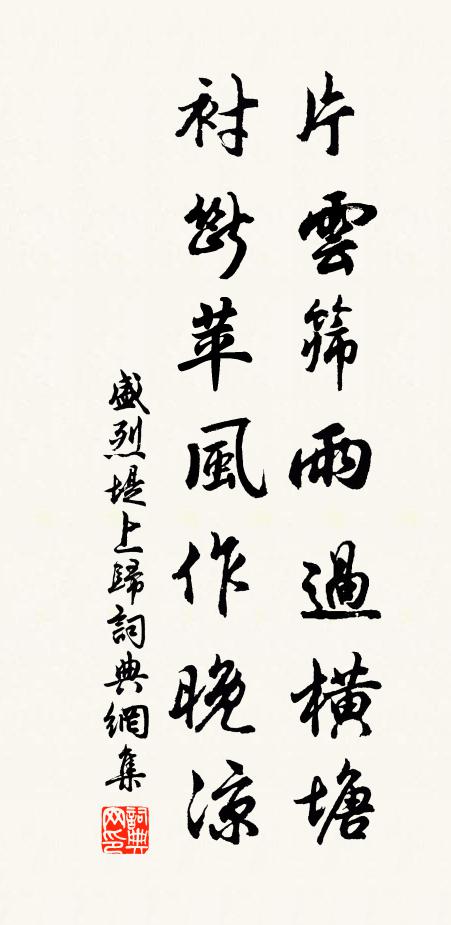 片雲篩雨過橫塘
衬斷苹風作晚涼
盛烈堤上歸詞典網集
詞典网印